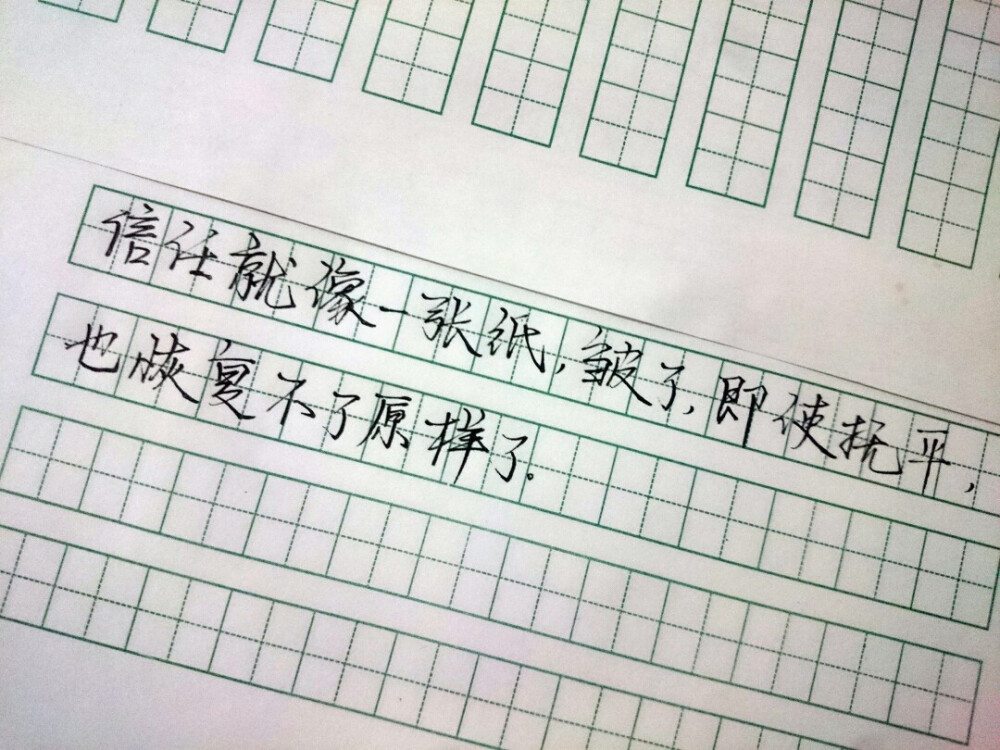 信任就像一张纸,皱了,即使抚平,
也恢复不了原样了。